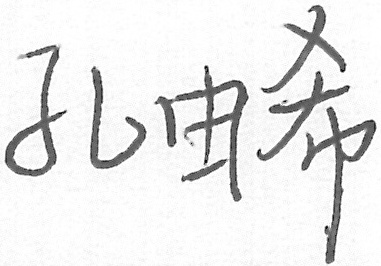 孔由希